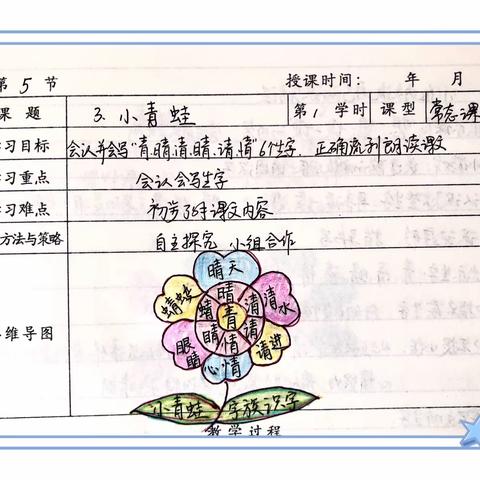 第 5 节
授课时间： 年 月
课 题 3. 小青蛙 第 1 学时 课型 常态课
习目标 会认并会写“青、晴、清、睛、请、情”6个生字，正确流利朗读课文
习重点 会认会写生字
习难点 初步了解课文内容
方法与策略 自主探究 小组合作
维导图
晴天
蜻蜓
清水
晴
蜻
清
青
睛
请
情
眼睛
请进
心情
小青蛙 字族识字
教学过程